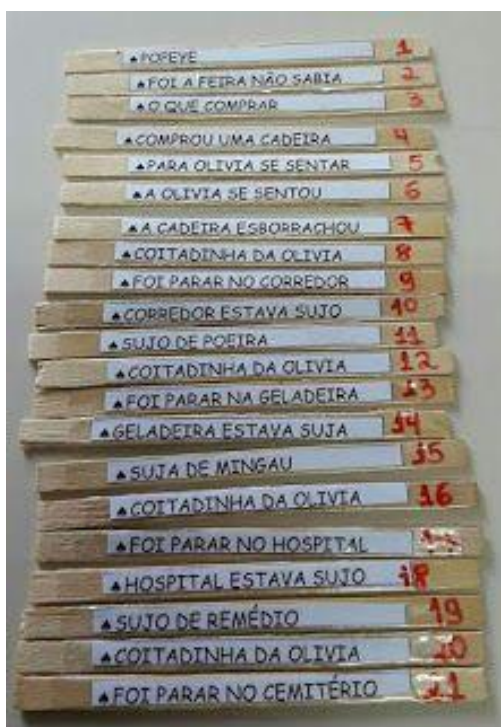 ♠POPEYE 1
♠FOI A FEIRA NÃO SABIA 2
♠O QUE COMPRAR 3
♠COMPROU UMA CADEIRA 4
♠PARA OLIVIA SE SENTAR 5
♠A OLIVIA SE SENTOU 6
♠A CADEIRA ESBORRACHOU 7
♠COITADINHA DA OLIVIA 8
♠FOI PARAR NO CORREDOR 9
♠CORREDOR ESTAVA SUJO 10
♠SUJO DE POEIRA 11
♠COITADINHA DA OLIVIA 12
♠FOI PARAR NA GELADEIRA 13
♠GELADEIRA ESTAVA SUJA 14
♠SUJA DE MINGAU 15
♠COITADINHA DA OLIVIA 16
♠FOI PARAR NO HOSPITAL
♠HOSPITAL ESTAVA SUJO 18
♠SUJO DE REMÉDIO 19
♠COITADINHA DA OLIVIA 20
♠FOI PARAR NO CEMITÉRIO 21